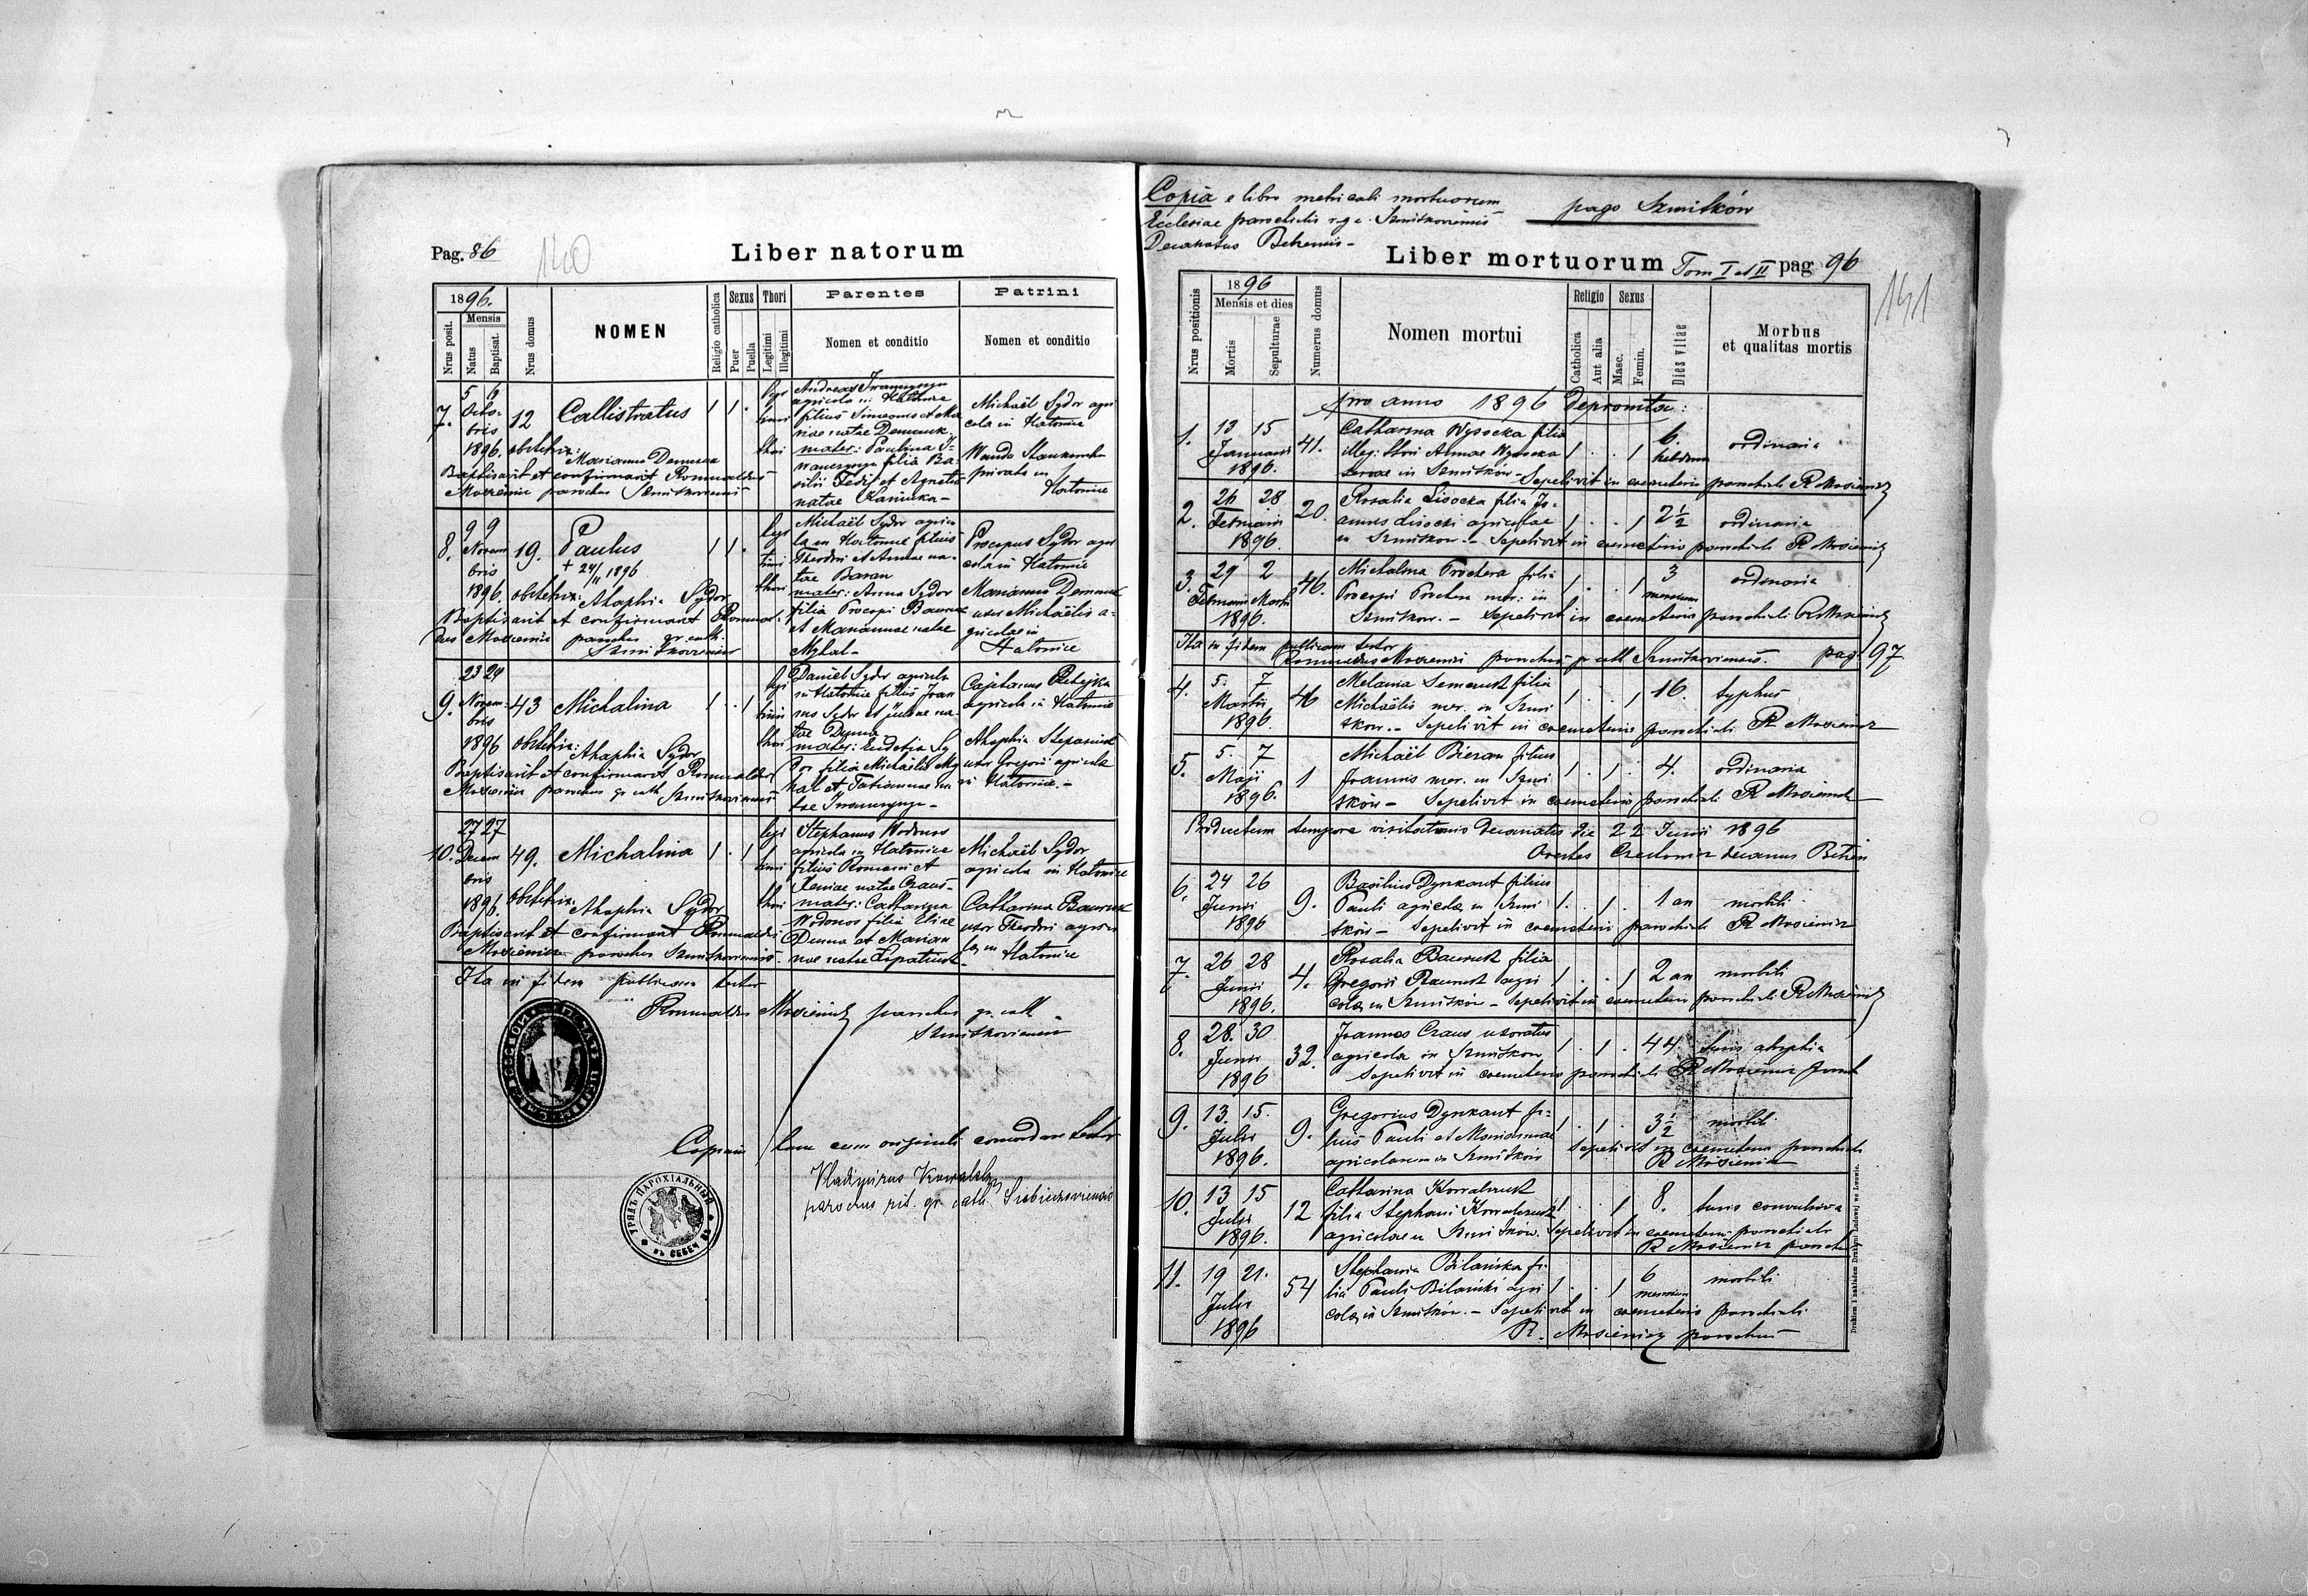 Pag. 86
140
Liber natorum
1896.
Nrus posit.
Mensis
Natus
Baptisat.
Nrus domus
NOMEN
Religio catholica
Sexus
Puer
Puella
Thori
Legitimi
Illegitimi
Parentes
Nomen et conditio
Patrini
Nomen et conditio
7. 5 6 Octo-
bris
1896.
12
Callistratus
1 1 .
legi
timi
thori
agricola in Hatowice
filius Simeonis et Ma
riae natae Demczuk.
mater: Paulina
natae
Michaël Sydor agri
cola in Hatowice
Wanda
privata in
Hatowice
obstetrix: Marianna Demczuk
Baptisavit et confirmavit Romualdus
Mosiewicz parochus Szmitkoviensis
8. 9 9
Novem
bris
1896.
19.
Paulus
+ 24/11 1896
1 1 .
legi
timi
thori
Michaël Sydor agrico
la in Hatowice filius
Theodori et Annae na-
tae Baran
mater: Anna Sydor
filia Procopi
et Mariannae natae
Mykal-
Procopius Sydor agri
cola in Hatowice
Marianna Demczuk
uxor Michaëlis a-
gricolae in
Hatowice
obstetrix: Ahaphia Sydor
Baptisavit et confirmavit Romual-
dus Mosiewicz parochus gr. cath.
Szmitkoviensis
9. 23 24
Novem-
bris
1896
43
Michalina
1 . 1
legi
timi
thori
Daniel Sydor agricola
in Hatowice filius Joan
nis Sydor et Juliae na-
tae
mater: Eudotia Sy
dor filia Michaëlis My
kal et Tatiannae na
tae
Cajetanus
agricola in Hatowice
Ahaphia Stepaniuk
uxor Gregorii agricolae
in Hatowice.-
obstetrix: Ahaphia Sydor
Baptisavit et confirmavit Romualdus
Mosiewicz parochus gr. cath. Szmitkoviensis
10. 27 27
Decem
bris
1896.
49.
Michalina
1 . 1
legi
timi
thori
Stephanus Wodonos
agricola in Hatowice
filius Romani et
Xeniae natae Craus-
mater: Catharina
Wodonos filia Eliae
et Marian
nae natae
Michaël Sydor
agricola in Hatowice
Catharina
uxor Theodori agrico
lae in Hatowice
obstetrix: Ahaphia Sydor
Baptisavit et confirmavit Romualdus
Mosiewicz parochus Szmitkoviensis.
Ita in fidem publicam testor
Romualdus Mosiewicz parochus gr. cath.
Szmitkoviensis
Copiam hanc cum originali concordare testor
Vladymirus
parochus rit. gr. cath.
УРЯДЪ ПАРОХІАЛЬНЫЙ
Copia e libro metricali mortuorum
Ecclesiae parochialis r. g. c. Szmitkoviensis
Decanatus Belzensis -
pago Szmitków
Liber mortuorum Tom I et II pag 96
141
Nrus positionis
1896
Mensis et dies
Mortis
Sepulturae
Numerus domus
Nomen mortui
Religio
Catholica
Aut alia
Sexus
Masc.
Femin.
Dies vitae
Morbus
et qualitas mortis
pro anno 1896 depromta:
1. 13 15
Januarii
1896.
41.
Catharina Wysocka filia
illeg. thori Annae Wysocka
servae in Szmitków - Sepelivit in coemeterio parochiali R Mosiewicz
1 . . 1
6.
hebdom
ordinaria
2. 26 28
Februarii
1896.
20.
Rosalia Lisocka filia Jo-
annis Lisocki agricolae
in Szmitków.- Sepelivit in coemeterio parochiali R Mosiewicz
1 . . 1
2½
ordinaria
3. 29 2
Februarii Martii
1896.
46.
Michalina Prochera filia
Procopii Prochera mer. in
Szmitkow. - Sepelivit in coemeterio parochiali R Mosiewicz
1 . . 1
3
mensium
ordinaria
Ita in fidem publicam testor
Romualdus Mosiewicz parochus gr. cath Szmitkoviensis. pag. 97.
4. 5. 7
Martii
1896.
46
Melania Semeniuk filia
Michaëlis mer. in Szmi
tkow.- Sepelivit in coemeterio parochiali R Mosiewicz
1 . . 1
16.
typhus
5. 5. 7
Maji
1896.
1
Michaël Bieran filius
Joannis mer. in Szmi
tków - Sepelivit in coemeterio parochiali R Mosiewicz
1 . 1 .
4.
ordinaria
Productum tempore visitationis decanalis die 22 Junii 1896
Orestes decanus
6. 24 26
Junii
1896
9.
Basilius Dynkaut filius
Pauli agricolae in Szmi
tków - Sepelivit in coemeterio parochiali R Mosiewicz
1 . 1 .
1 an
morbili
7. 26 28
Junii
1896.
4.
Rosalia filia
Gregorii agri
colae in Szmitków - Sepelivit in coemeterio parochiali R Mosiewicz
1 . . 1
2 an
morbili
8. 28. 30
Junii
1896
32.
Joannes Craus uxoratus
agricola in Szmitkow
Sepelivit in coemeterio parochiali R Mosiewicz
1 . 1 .
44.
9. 13. 15.
Julii
1896.
9.
Gregorius Dynkaut fi-
lius Pauli et Mariannae
agricolarum in Szmitków
Sepelivit in coemeterio parochiali
R Mosiewicz
1 . 1 .
3½
morbili
10. 13 15
Julii
1896.
12
Catharina Kowalczuk
filia Stephani Kowalczuk
agricolae in Szmitków. Sepelivit in coemeterio parochiali
R Mosiewicz parochus
1 . . 1
8.
tusis convulsiva
11. 19 21.
Julii
1896
54
Stephania Bilańska fi-
lia Pauli Bilański agri
colae in Szmitków. - Sepelivit in coemeterio parochiali
R. Mosiewicz parochus
1 . . 1
6
mensium
morbili
Drukiem i nakładem Drukarni Ludowej we Lwowie.